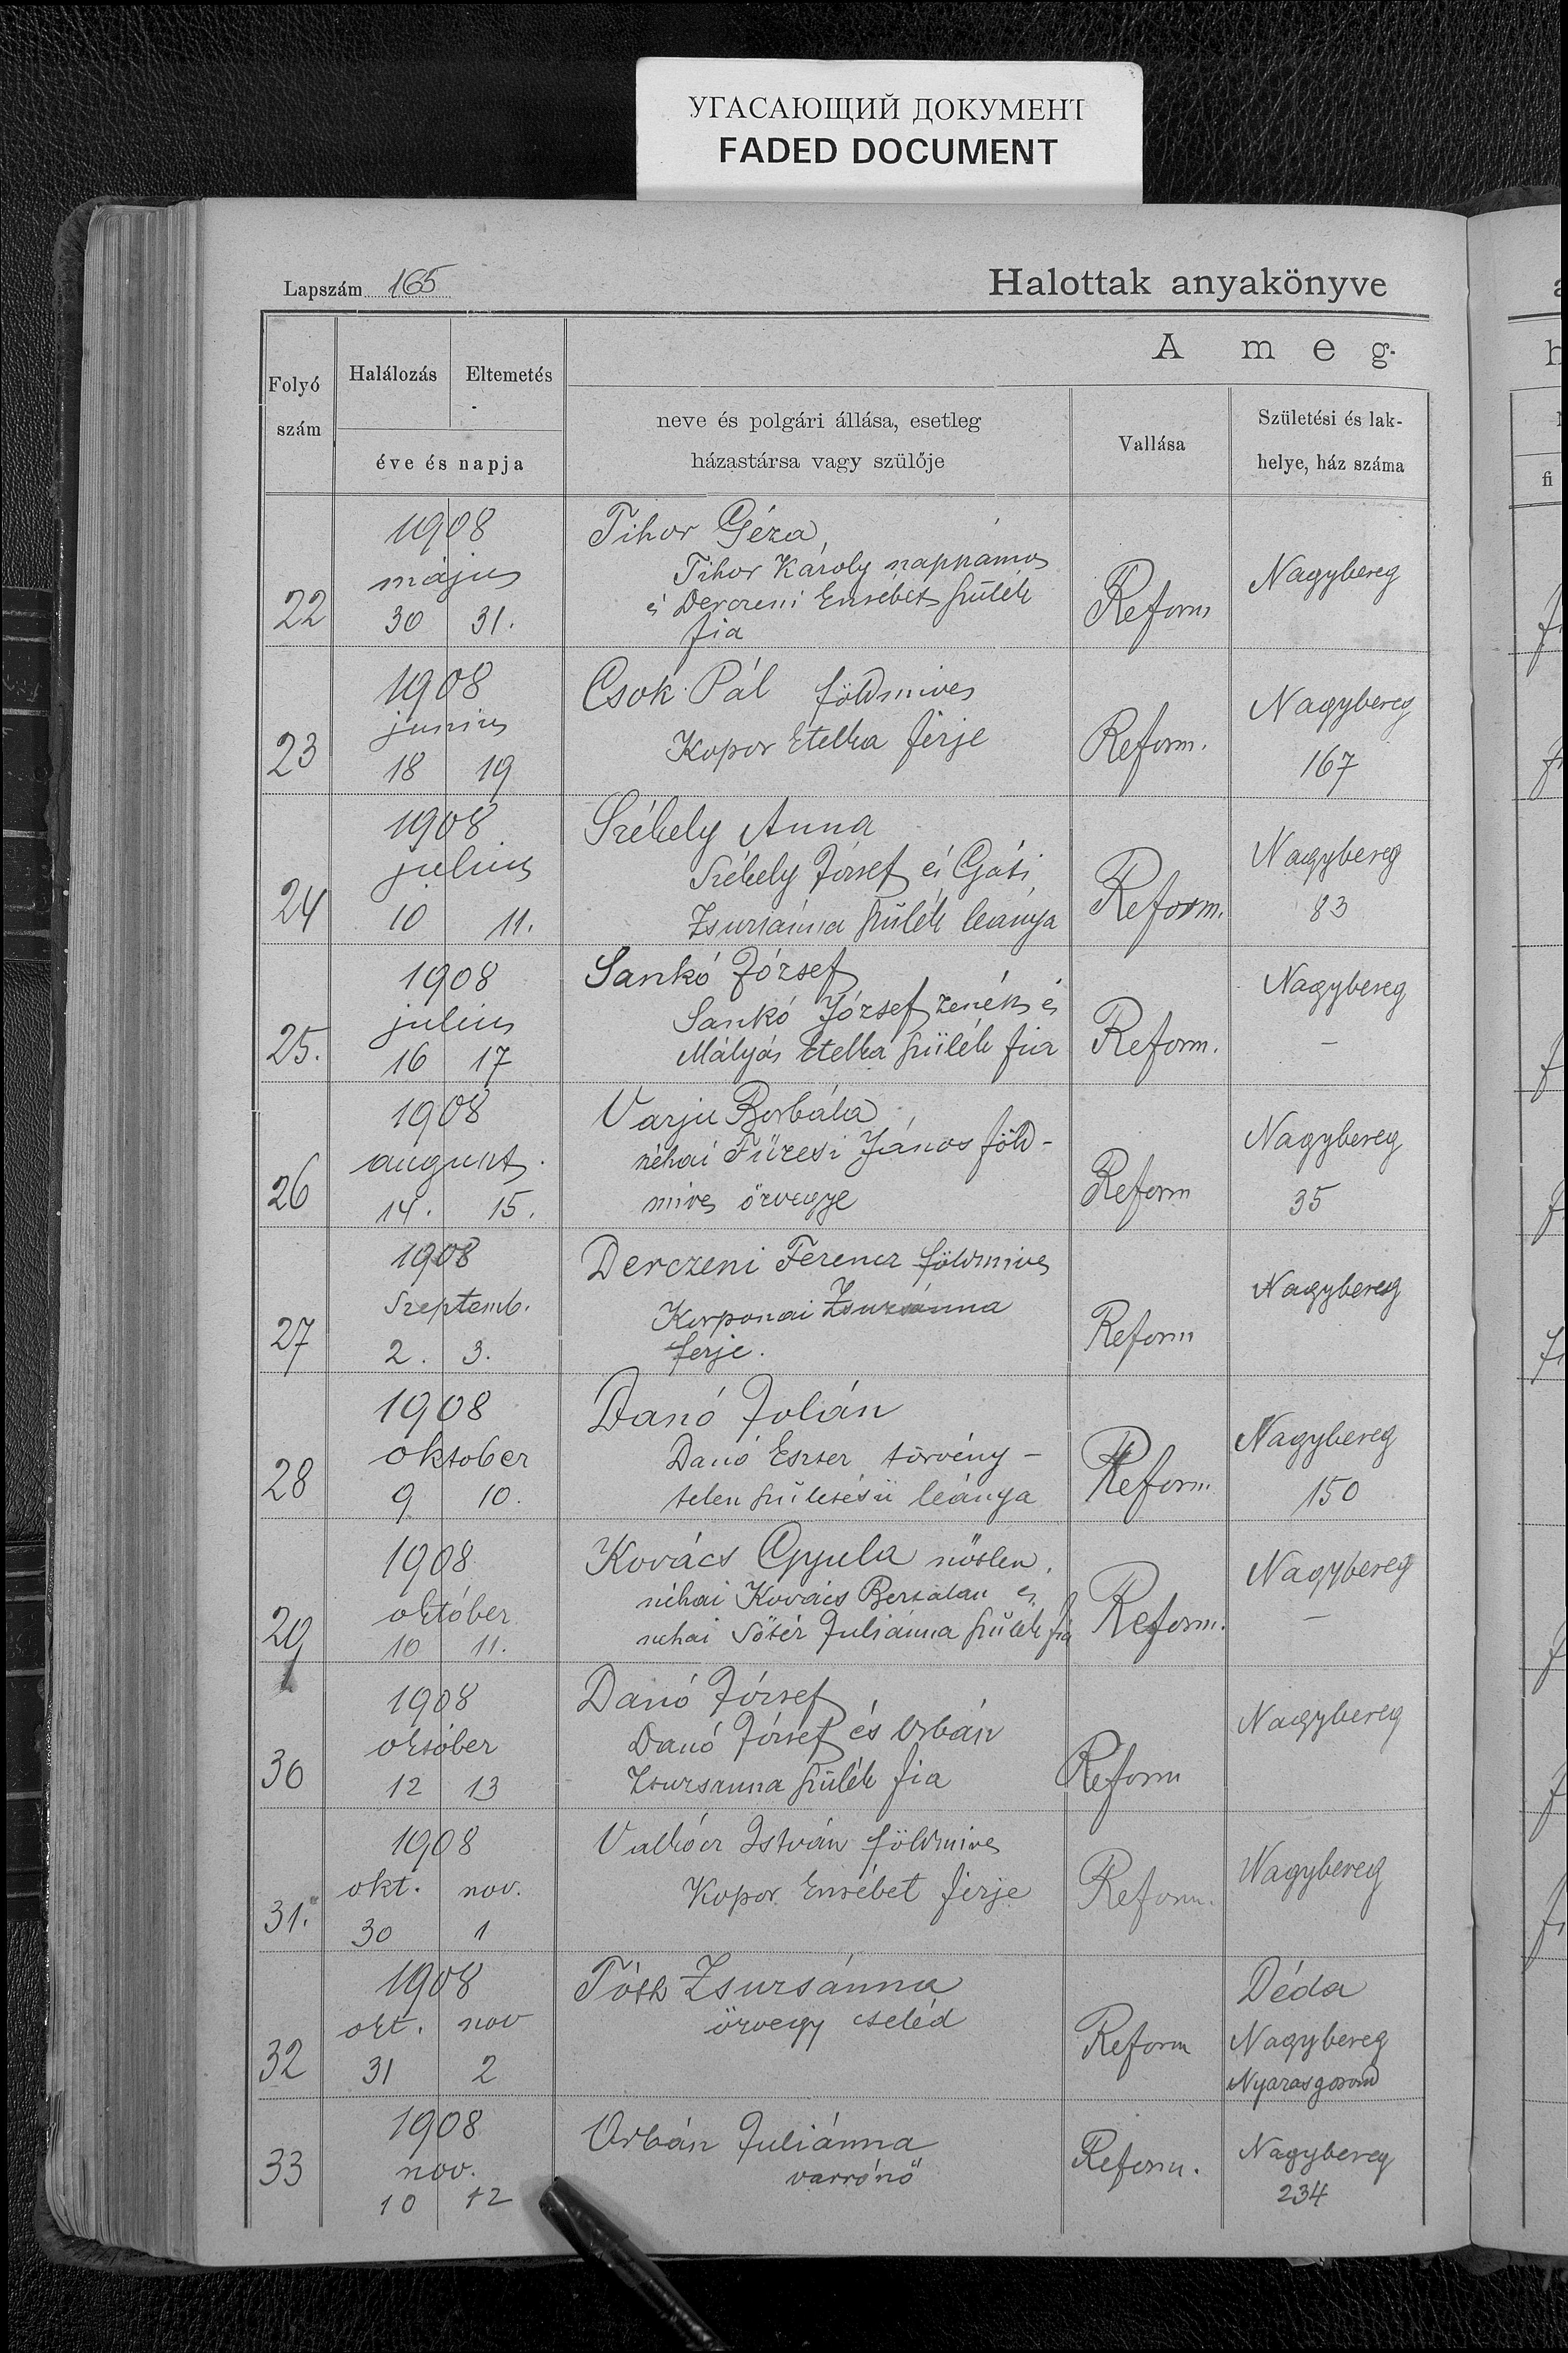 УГАСАЮЩИЙ ДОКУМЕНТ
FADED DOCUMENT
Lapszám 165
Halottak anyakönyve
A meg-
Folyó szám
Halálozás
Eltemetés
éve és napja
neve és polgári állása, esetleg
házastársa vagy szülője
Vallása
Születési és lak-
helye, ház száma
22
1908
május
30 31.
Tihor Géza,
Tihor Károly napszámos
és Derczeni Erzsébet szülék
fia
Reform
Nagybereg
23
1908
junius
18 19
Csok Pál földmives
Kopor Etelka férje
Reform.
Nagybereg
167
24
1908
julius
10 11.
Székely Anna
Székely József és Gáti
Zsuzsánna szülék leánya
Reform.
Nagybereg
83
25.
1908
julius
16 17
Sankó József
Sankó József zenész és
Mátyás Etelka szülék fia
Reform.
Nagybereg
–
26
1908
auguszt.
14. 15.
Varju Borbála
néhai Füzesi János föld-
mives özvegye
Reform
Nagybereg
35
27
1908
Szeptemb.
2. 3.
Derczeni Ferencz földmives
Korponai Zsuzsánna
férje.
Reform
Nagybereg
28
1908
oktober
9 10.
Danó Jolán
Danó Eszter törvény-
telen születésü leánya
Reform
Nagybereg
150
29
1908
október
10 11.
Kovács Gyula nőtlen,
néhai Kovács Bertalan és
néhai Sőtér Juliánna szülék fia
Reform.
Nagybereg
–
30
1908
október
12 13
Danó József
Danó József és Orbán
Zsuzsanna szülék fia
Reform
Nagybereg
31.
1908
okt. nov.
30 1
Valkócz István földmives
Kopor Erzsébet férje
Reform.
Nagybereg
32
1908
okt. nov
31 2
Tóth Zsuzsánna
özvegy cseléd
Reform
Déda
Nagybereg
Nyarasgorond
33
1908
nov.
10 12
Orbán Juliánna
varrónő
Reform.
Nagybereg
234